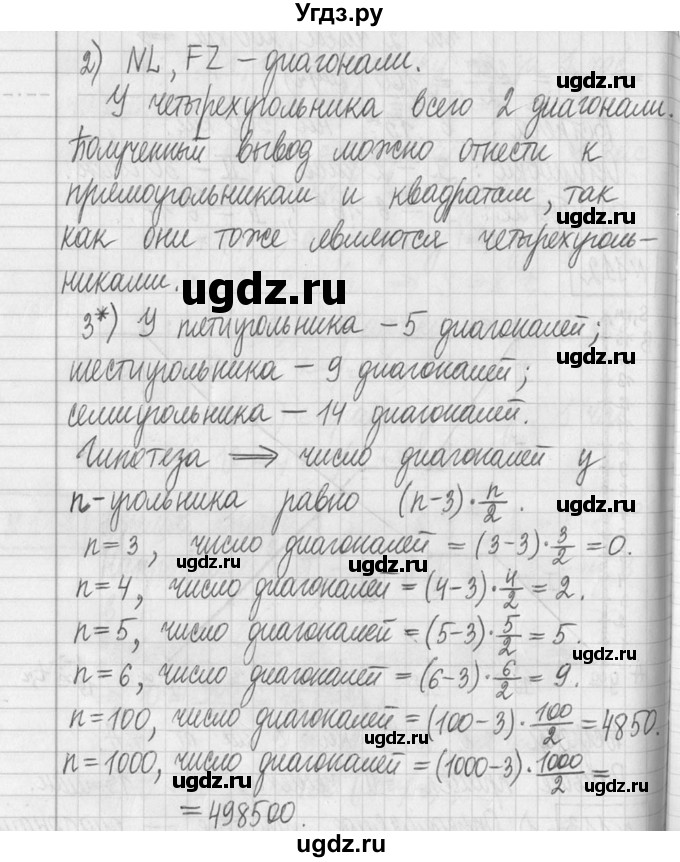 Угдз.ру
2) NL, FZ – диагонали.
ugdz.ru
У четырехугольника всего 2 диагонали.
ugdz.ru
Полученный вывод можно отнести к
прямоугольникам и квадратам, так
ugdz.ru
как они тоже являются четырехуголь-
никами.
ugdz.ru
3*) У пятиугольника – 5 диагоналей;
ugdz.ru
шестиугольника – 9 диагоналей;
семиугольника – 14 диагоналей.
Гипотеза ⟹ число диагоналей у
n-угольника равно (n-3)·n/2.
ugdz.ru
n=3, число диагоналей = (3-3)·3/2 = 0.
ugdz.ru ugdz.ru
n=4, число диагоналей = (4-3)·4/2 = 2.
n=5, число диагоналей = (5-3)·5/2 = 5.
ugdz.ru
n=6, число диагоналей = (6-3)·6/2 = 9.
n=100, число диагоналей = (100-3)·100/2 = 4850.
ugdz.ru
n=1000, число диагоналей = (1000-3)·1000/2 =
ugdz.ru
= 498500.
ugdz.ru
ugdz.ru